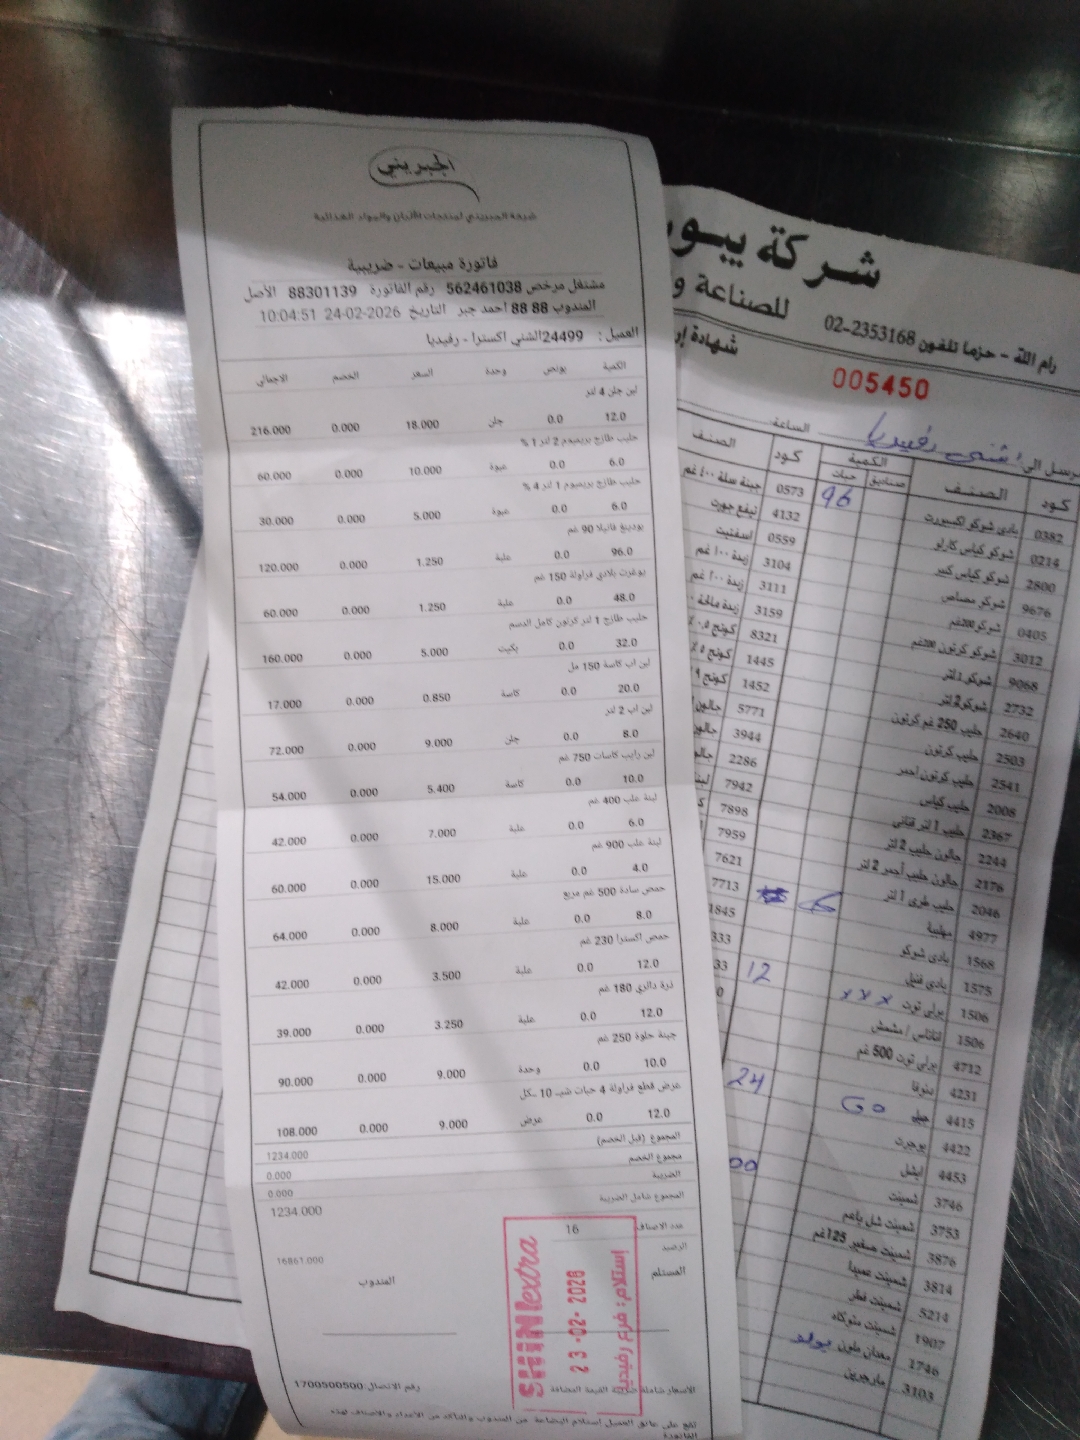 الجبريني
شركة الجبريني لمنتجات الألبان والمواد الغذائية
فاتورة مبيعات - ضريبية
مشتغل مرخص 562461038 رقم الفاتورة 88301139 الأصل
المندوب 88 88 احمد جبر التاريخ 24-02-2026 10:04:51
العميل : 24499الشني اكسترا - رفيديا
الكمية بونص وحدة السعر الخصم الاجمالي
لبن جلن 4 لتر
12.0 0.0 جلن 18.000 0.000 216.000
حليب طازج بريميوم 2 لتر 1 %
6.0 0.0 عبوة 10.000 0.000 60.000
حليب طازج بريميوم 1 لتر 4 %
6.0 0.0 عبوة 5.000 0.000 30.000
بودينغ فانيلا 90 غم
96.0 0.0 علبة 1.250 0.000 120.000
يوغرت بلادي فراولة 150 غم
48.0 0.0 علبة 1.250 0.000 60.000
حليب طازج 1 لتر كرتون كامل الدسم
32.0 0.0 بكيت 5.000 0.000 160.000
لبن اب كاسة 150 مل
20.0 0.0 كاسة 0.850 0.000 17.000
لبن اب 2 لتر
8.0 0.0 جلن 9.000 0.000 72.000
لبن رايب كاسات 750 غم
10.0 0.0 كاسة 5.400 0.000 54.000
لبنة علب 400 غم
6.0 0.0 علبة 7.000 0.000 42.000
لبنة علب 900 غم
4.0 0.0 علبة 15.000 0.000 60.000
حمص سادة 500 غم مربع
8.0 0.0 علبة 8.000 0.000 64.000
حمص اكسترا 230 غم
12.0 0.0 علبة 3.500 0.000 42.000
ذرة دائري 180 غم
12.0 0.0 علبة 3.250 0.000 39.000
جبنة حلوة 250 غم
10.0 0.0 وحدة 9.000 0.000 90.000
عرض قطع فراولة 4 حبات شيـ 10 ـكل
12.0 0.0 عرض 9.000 0.000 108.000
المجموع (قبل الخصم) 1234.000
مجموع الخصم 0.000
الضريبة 0.000
المجموع شامل الضريبة 1234.000
عدد الاصناف 16
الرصيد 16861.000
المستلم المندوب
SHINI extra
23-02-2026
إستلام: فرع رفيديا
الاسعار شاملة ضريبة القيمة المضافة
رقم الاتصال:1700500500
يقع على عاتق العميل إستلام البضاعة من المندوب والتأكد من الأعداد والأصناف لهذه
الفاتورة
شركة يبو
للصناعة و
رام الله - حزما تلفون 02-2353168
شهادة إر
005450
مرسل الى: شني رفيديا الساعة
كود الصنف الكمية كود الصنف
صناديق حبات
0382 يادي شوكو اكسبورت 96 0573 جبنة سلة ٤٠٠ غم
0214 شوكو كياس كارلو 4132
2800 شوكو كياس كبير 0559
9676 شوكو مصاص 3104 زبدة ١٠٠ غم
0405 شوكو 200غم 3111 زبدة ٢٠٠ غم
3012 شوكو كرتون 200غم 3159 زبدة مالحة
9068 شوكو 1 لتر 8321 كوتج ٠,٥ ٪
2732 شوكو 2 لتر 1445 كوتج ٥ ٪
2640 حليب 250 غم كرتون 1452 كوتج ٩
2503 حليب كرتون 5771 جالون
2541 حليب كرتون احمر 3944
2008 حليب كياس 2286
2367 حليب 1 لتر قناني 7942
2244 جالون حليب 2 لتر 7898
2176 جالون حليب أحمر 2 لتر 7959
2046 حليب طري 1 لتر 7621
4977 مهلبية 6 7713
1568 يادي شوكو 1845
1575 يادي فنيل 333
1506 برلي توت xxx 12 33
1506 اناناس / مشمش
4712 برلي توت 500 غم
4231 دنونا
4415 جيلي 60 24
4422 يوجرت
4453 ايشل
3746 شمينت 00
3753 شمينت شل باعم
3876 شمينت صغير 125غم
3814 شمينت عميدا
5214 شمينت فطر
1907 شمينت متوكاه
1746 معدان ملون
3103 مارجرين